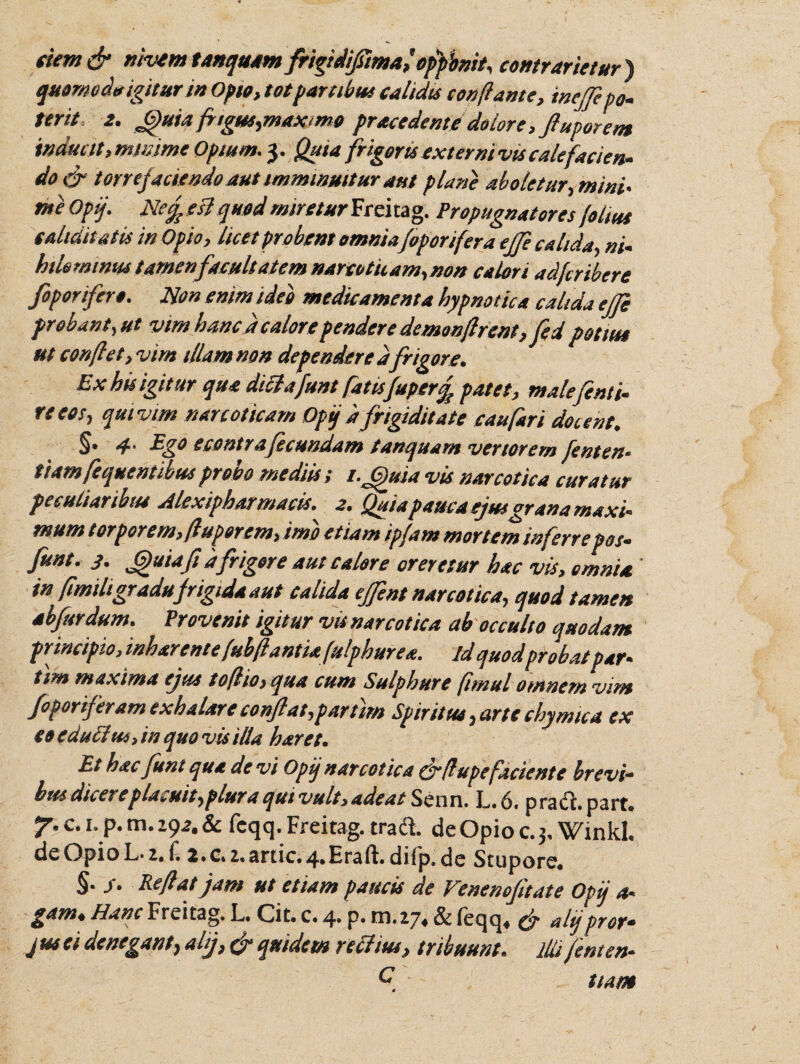 ciem & nivem tanquam frigidißima, oppōnit, contrarietur)
quomodo igitur in Opio, tot partibus calidis constante, inesse po-
terit. 2. Quia frigus, maximo præcedente dolore, stuporem
inducit, minime Opium. 3. Quia frigoris externi vis calefacien-
do & torrefaciendo aut imminuitur aut plane aboletur, mini-
me Opij. Neq; est quod miretur Freitag. Propugnatores solius
caliditatis in Opio, licet probent omnia soporifera esse calida, ni-
hilominus tamen facultatem narcoticam, non calori adscribere
soporifero. Non enim ideò medicamenta hypnotica calida esse
probant, ut vim hanc à calore pendere demonstrent, sed potius
ut constet, vim illam non dependere à frigore.
Ex his igitur quæ dicta sunt satis superq; patet, male senti-
re eos, qui vim narcoticam Opij à frigiditate causari docent.
§. 4. Ego econtra secundam tanquam veriorem senten-
tiam sequentibus probo mediis; 1. Quia vis narcotica curatur
peculiaribus Alexipharmacis. 2. Quia pauca ejus grana maxi-
mum torporem, stuporem, imò etiam ipsam mortem inferre pos-
sunt. 3. Quia si à frigore aut calore oreretur hæc vis, omnia
in simili gradu frigida aut calida essent narcotica, quod tamen
absurdum. Provenit igitur vis narcotica ab occulto quodam
principio, inhærente substantiæ sulphureæ. Id quod probat par-
tim maxima ejus tostio, qua cum Sulphure simul omnem vim
soporiferam exhalare constat, partim Spiritus, arte chymica ex
eo eductus, in quo vis illa hæret.
Et hæc sunt quæ de vi Opij narcotica & stupefaciente brevi-
bus dicere placuit, plura qui vult, adeat Senn. L. 6. pract. part.
7. c. 1. p. m. 292. & seqq. Freitag. tract. de Opio c. 3. Winkl.
de Opio L. 2. s. 2. c. 2. artic. 4. Erast. disp. de Stupore.
§. 5. Restat jam ut etiam paucis de Venenositate Opij a-
gam. Hanc Freitag. L. Cit. c. 4. p. m. 27. & seqq. & alij pror-
sus ei denegant, alij, & quidem rectius, tribuunt. Illi senten-
C tiam